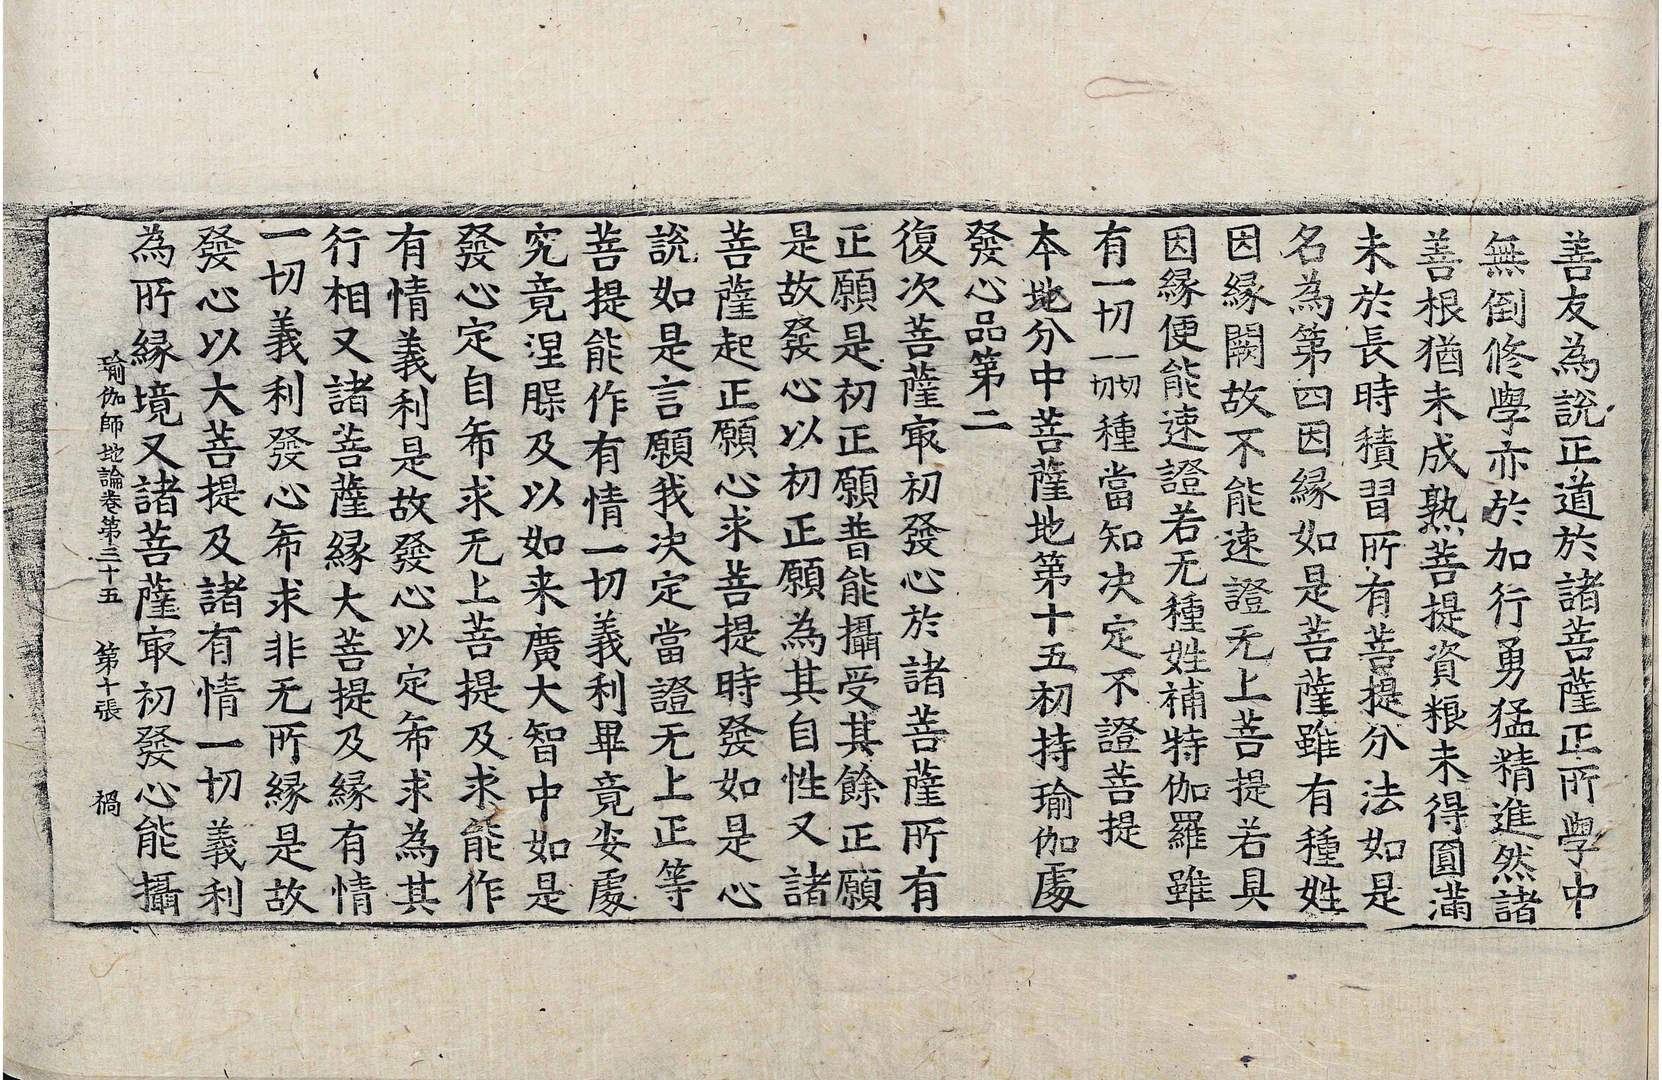 善友為說正道於諸菩薩正所學中
無倒修學亦於加行勇猛精進然諸
善根猶未成熟菩提資粮未得圓滿
未於長時積習所有菩提分法如是
名為第四因緣如是菩薩雖有種姓
因緣闕故不能速證无上菩提若具
因緣便能速證若无種姓補特伽羅雖
有一切一切一切種當知決定不證菩提
本地分中菩薩地第十五初持瑜伽處
發心品第二
復次菩薩㝡初發心於諸菩薩所有
正願是初正願普能攝受其餘正願
是故發心以初正願為其自性又諸
菩薩起正願心求菩提時發如是心
說如是言願我決定當證无上正等
菩提能作有情一切義利畢竟安處
究竟涅槃及以如来廣大智中如是
發心定自希求无上菩提及求能作
有情義利是故發心以定希求為其
行相又諸菩薩緣大菩提及緣有情
一切義利發心希求非无所緣是故
發心以大菩提及諸有情一切義利
為所緣境又諸菩薩㝡初發心能攝
瑜伽師地論卷第三十五 第十張 禍